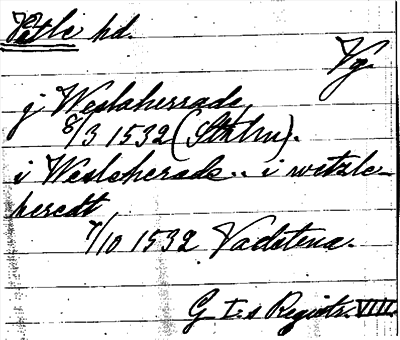 Vätle hd.
Vg.
j Weslaherrade
8/3 1532 (Sthlm).
i Wesleherade.. i wetzle-
heredt
7/10 1532 Vadstena.
G I:s Registr. VIII.